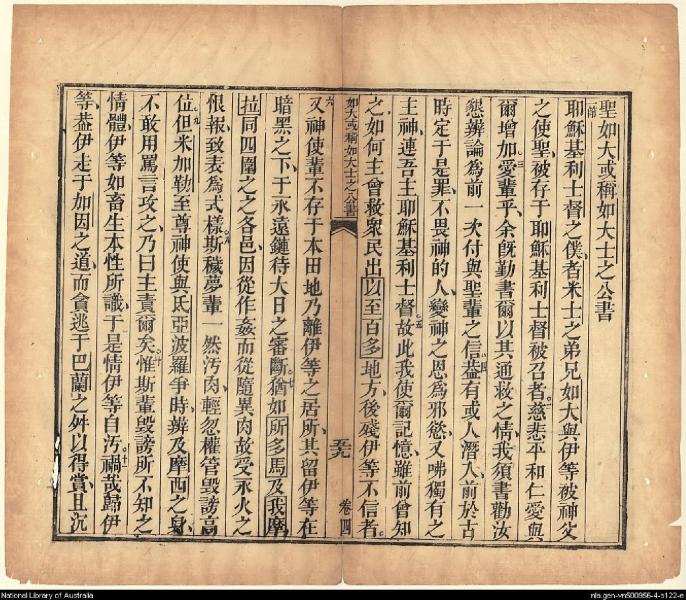 聖如大或稱如大士之公書
耶穌基利士督之僕者米士之弟兄如大與伊等被神父
之使聖被存于耶穌基利士督被召者慈悲平和仁愛與
爾增加愛輩乎余旣勤書爾以其通救之情我須書勸汝
懇辨論爲前一次付與聖輩之信葢有或人潛入前於古
時定于是罪不畏神的人變神之恩爲邪慾又咈獨有之
主神連吾主耶穌基利士督故此我使爾記憶雖前曾知
之如何主曾救衆民出以至百多地方後殘伊等不信者
如大或稱如大士之公書
卷四
又神使輩不存于本田地乃離伊等之居所其留伊等在
暗黑之下于永遠鏈待大日之審斷猶如所多馬及我摩
拉同四圍之之各邑因從作姦而從隨異肉故受永火之
恨報致表爲式樣斯穢夢輩一然汚肉輕忽權管毀謗高
位但米加勒至尊神使與氐亞波羅爭時辨及摩西之身
不敢用罵言攻之乃曰主責爾矣惟斯輩毀謗所不知之
情體伊等如畜生本性所識于是情伊等自汚禍哉歸伊
等葢伊走于加因之道而貪逃于巴蘭之舛以得賞且沉
National Library of Australia
nla.gen-vn500956-4-s122-e